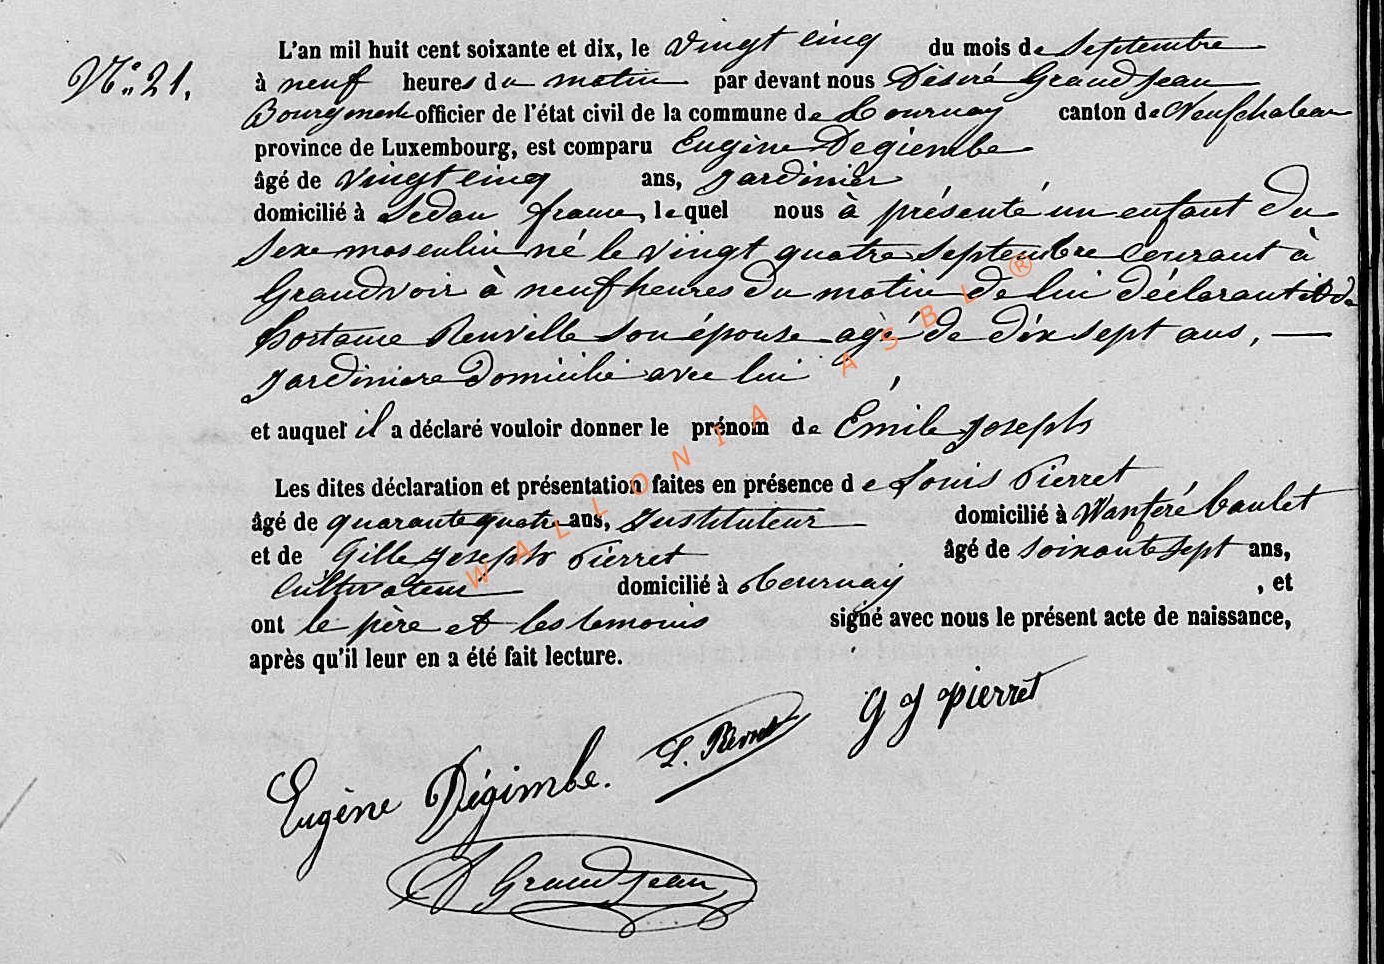 N° 21.
L'an mil huit cent soixante et dix, le vingt cinq du mois de Septembre
à neuf heures du matin par devant nous Désiré Grandjean
Bourgmestre officier de l'état civil de la commune de Tournay canton de Neufchateau
province de Luxembourg, est comparu Eugène Degiembe
âgé de vingt cinq ans, Jardinier
domicilié à Sedan france, lequel nous à présenté un enfant du
Sexe masculin né le vingt quatre Septembre courant à
Grandvoir à neuf heures du matin de lui déclarant et de
hortance Renville Son épouse agé de dix sept ans, —
Jardiniere domicilié avec lui
et auquel il a déclaré vouloir donner le prénom de Émile Joseph
Les dites déclaration et présentation faites en présence de Louis Pierret
âgé de quarante quatre ans, Instituteur domicilié à Wanferé baulet
et de Gille Joseph Pierret âgé de soixante sept ans,
Cultivateur domicilié à Tournay , et
ont le père et les temoins signé avec nous le présent acte de naissance,
après qu'il leur en a été fait lecture.
G J Pierret
L. Pierret
Eugène Dégimbe.
D Grandjean
WALLONIA ASBL ®